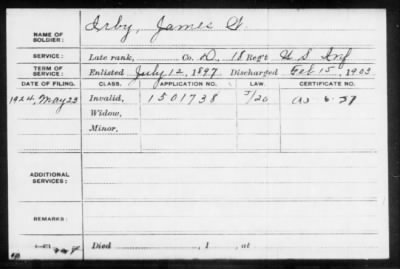 NAME OF SOLDIER: Irby, James G.
SERVICE: Late rank, Co. D, 18 Reg't U S Inf
TERM OF SERVICE: Enlisted July 12, 1897, Discharged Feb 15, 1903
DATE OF FILING. CLASS. APPLICATION NO. LAW. CERTIFICATE NO.
1924, May 23 Invalid, 1501738
Widow,
Minor,
ADDITIONAL SERVICES:
REMARKS:
Died , 1 , at